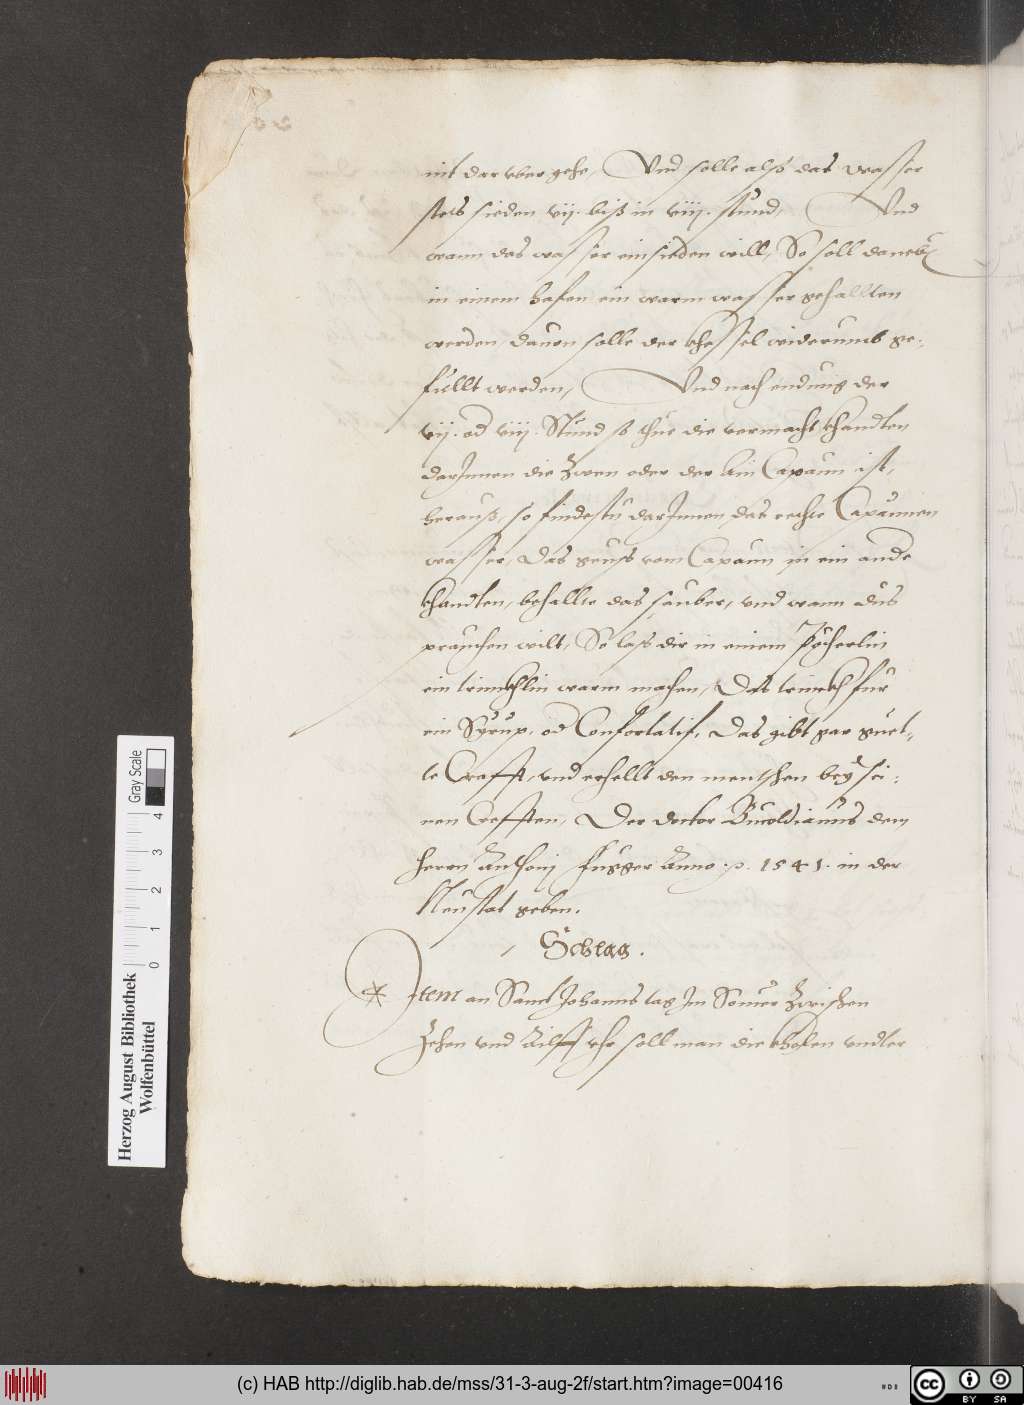 nit darvber gehe, Vnd solle alsß das wasser
stets sieden vij. biß in viij. stund, Vnd
wann das wasser einsieden will, So soll daneb
in einem hafen ein warm wasser gehallten
werden, dauon solle der khessel widerumb ge-
füllt werden, Vnd nach endung der
vij. od viij. Stund so thue die vermacht khandten
darInnen die Zwen oder der ain Capaun ist,
herauß, so findestu darInnen das recht Capaunien
wasser, Das geuß vom Capaun in ein ande
khandten, behallte das sauber, vnd wann dus
prauchen wilt, So lass dir in einem Pecherlin
ein trinckhlin warm machen, Das trinckh für
ein Syrup. od Confortatif, Das gibt gar guet-
te Crafft, vnd erhellt den menschen bey sei-
nen Crefften, Der doctor Bucoldianus dem
herrn Anthonij Fugger Anno .p. 1541. in der
Neustat geben.
Schlag.
Item an Sanct Johanns tag Im Somer Zwischen
Zehen vnd Ailff vhr soll man die kholen vndter
Herzog August Bibliothek
Wolfenbüttel
Gray Scale
0 1 2 3 4
(c) HAB http://diglib.hab.de/mss/31-3-aug-2f/start.htm?image=00416
cc BY SA